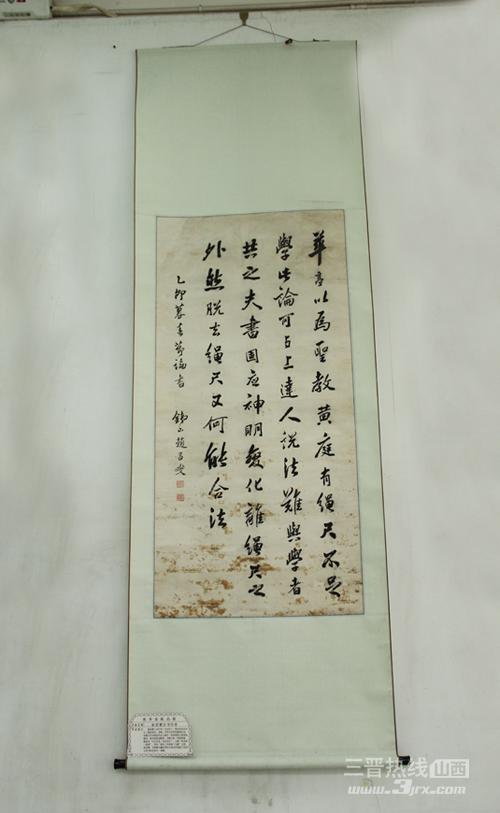 華亭以為聖教黄庭有繩尺不足
學此論可与上達人說法難與學者
共之夫書固应神明變化離繩尺之
外然脱去繩尺又何能合法
乙卯暮春節論書 鐵山趙昌燮
三晋热线山西
www.3jrx.com